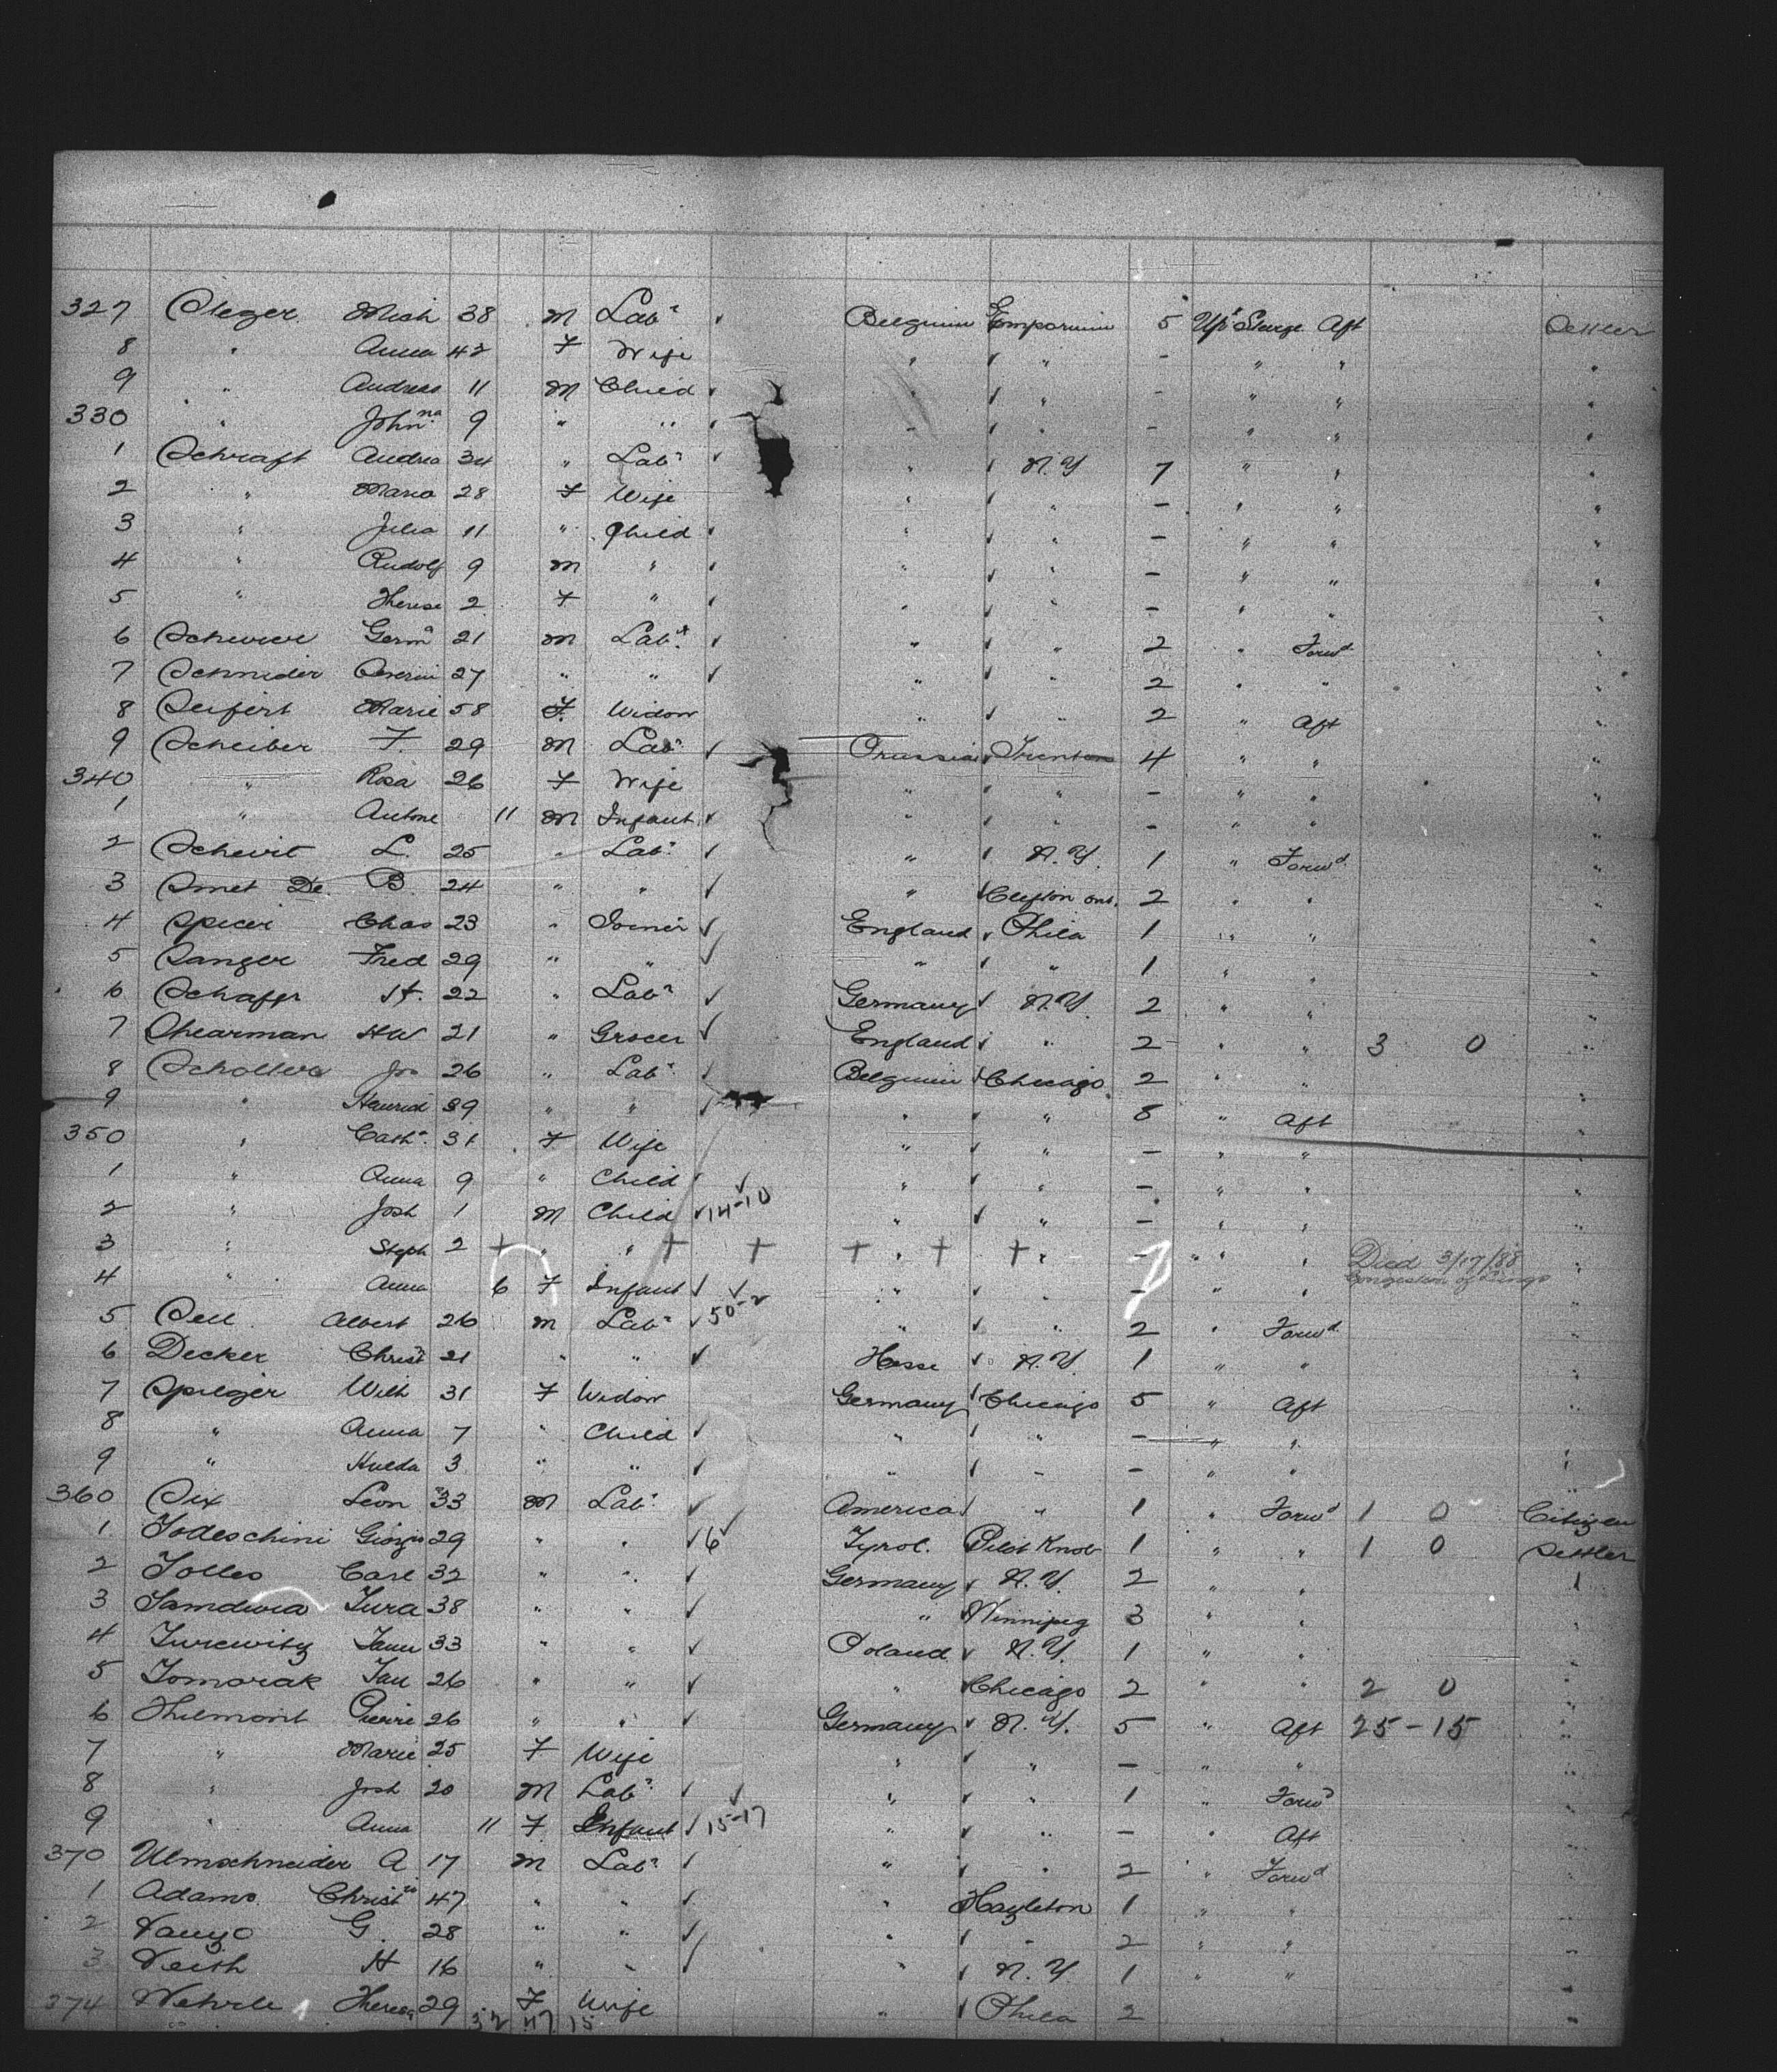 327 Steger Mich 38 M Labr Belguim Emporium 5 Upr Steerge Aft Settler
8 " Anna 42 F Wife " " - " " "
9 " Andreas 11 M Child " " - " " "
330 " Johnna 9 " " " " - " " "
1 Schraft Andrea 34 " Labr " N.Y 7 " " "
2 " Maria 28 F Wife " " - " " "
3 " Julia 11 " Child " " - " " "
4 " Rudolf 9 M " " " - " " "
5 " Therese 2 F " " " - " " "
6 Germa 21 M Labr " " 2 " Forwd "
7 Schnider 27 " " " " 2 " " "
8 Seifert Marie 58 F. Widow " " 2 " Aft "
9 Scheiber F. 29 M Labr Prussia Trenton 4 " " "
340 " Rosa 26 F Wife " " - " " "
1 " Antone 11 M Infant " " - " " "
2 L. 25 " Labr " N.Y. 1 " Forwd "
3 Smet De B. 24 " " " Clifton Ont. 2 " " "
4 Spicer Chas 23 " Joiner England Phila 1 " " "
5 Sanger Fred 29 " " " " 1 " " "
6 Schaffr St. 22 " Labr Germany N.Y. 2 " " "
7 Shearman HW 21 " Grocer England " 2 " " 3 0 "
8 Jos 26 " Labr Belguim Chicago 2 " " "
9 " 39 " " " " 8 " Aft "
350 " Cathe 31 F Wife " " - " " "
1 " Anna 9 " Child " " - " " "
2 " Josh 1 M Child 14-10 " " - " " "
3 " Steph 2 + " " + + + + + " - " " Died 3/17/88 "
Congestion of Lungs
4 " Anna 6 F Infant " " - " " "
5 Sell Albert 26 M Labr 50-2 " " 2 " Forwd "
6 Decker Christ 21 " " Hesse N.Y. 1 " " "
7 Spilger Wilh 31 F Widow Germany Chicago 5 " Aft "
8 " Anna 7 " Child " " - " " "
9 " Hulda 3 " " " " - " " "
360 Six Leon 33 M Labr America " 1 " Forwd 1 0 Citizen
1 Todeschini Giorgio 29 " " 6 Tyrol. Pilot Knob 1 " " 1 0 Settler
2 Tolles Carl 32 " " Germany N.Y. 2 " " "
3 Jura 38 " " " Winnipeg 3 " " "
4 33 " " Poland N.Y. 1 " " "
5 Tomarak Jan 26 " " " Chicago 2 " " 2 0 "
6 Thilmont Pierre 26 " " Germany N.Y. 5 " Aft 25-15 "
7 " Marie 25 F Wife " " - " " "
8 " Josh 20 M Labr " " 1 " Forwd "
9 " Anna 11 F Infant 15-17 " " - " Aft "
370 Ulmschneider A 17 M Labr " " 2 " Forwd "
1 Adams Christn 47 " " " Hazleton 1 " " "
2 G. 28 " " " " 2 " " "
3 Veith H 16 " " " N.Y. 1 " " "
374 Wehrle Theresa 29 F Wife " Phila 2 "
32 47 15